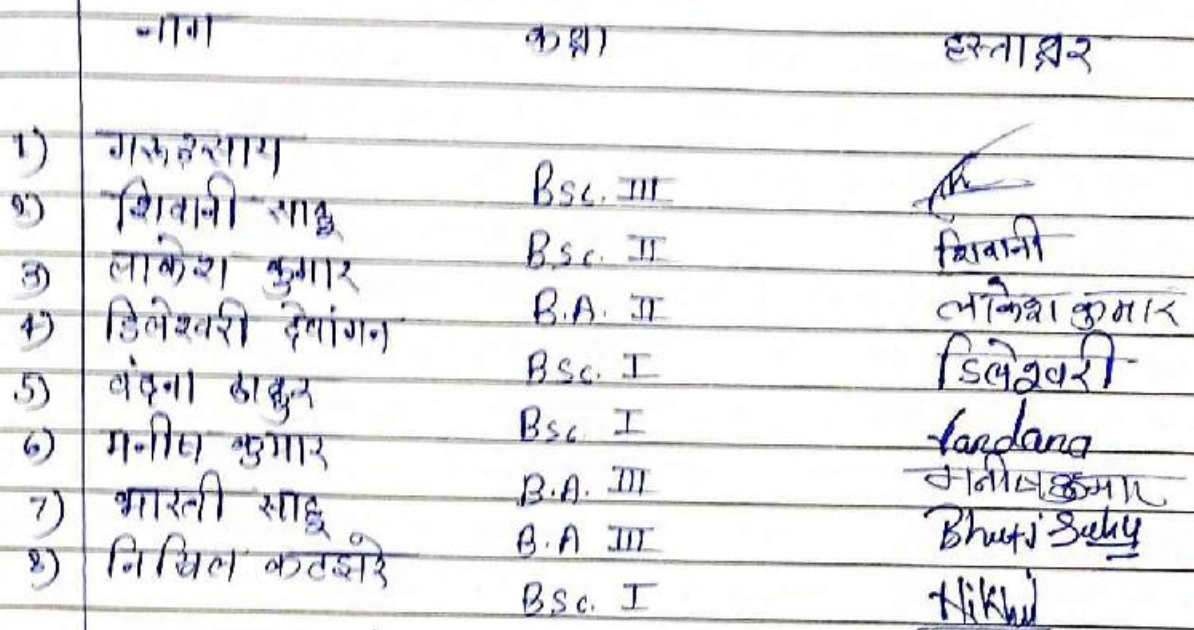 नाम कक्षा हस्ताक्षर
1) BSc. III
2) शिवानी साहू B.Sc. II शिवानी
3) लाकेश कुमार B.A. II लाकेश कुमार
4) डिलेश्वरी देवांगन BSc. I डिलेश्वरी
5) वंदना ठाकुर BSc I Vandana
6) मनीष कुमार B.A. III मनीष कुमार
7) भारती साहू B.A III
8) निखिल कटझरे BSc. I Nikhil